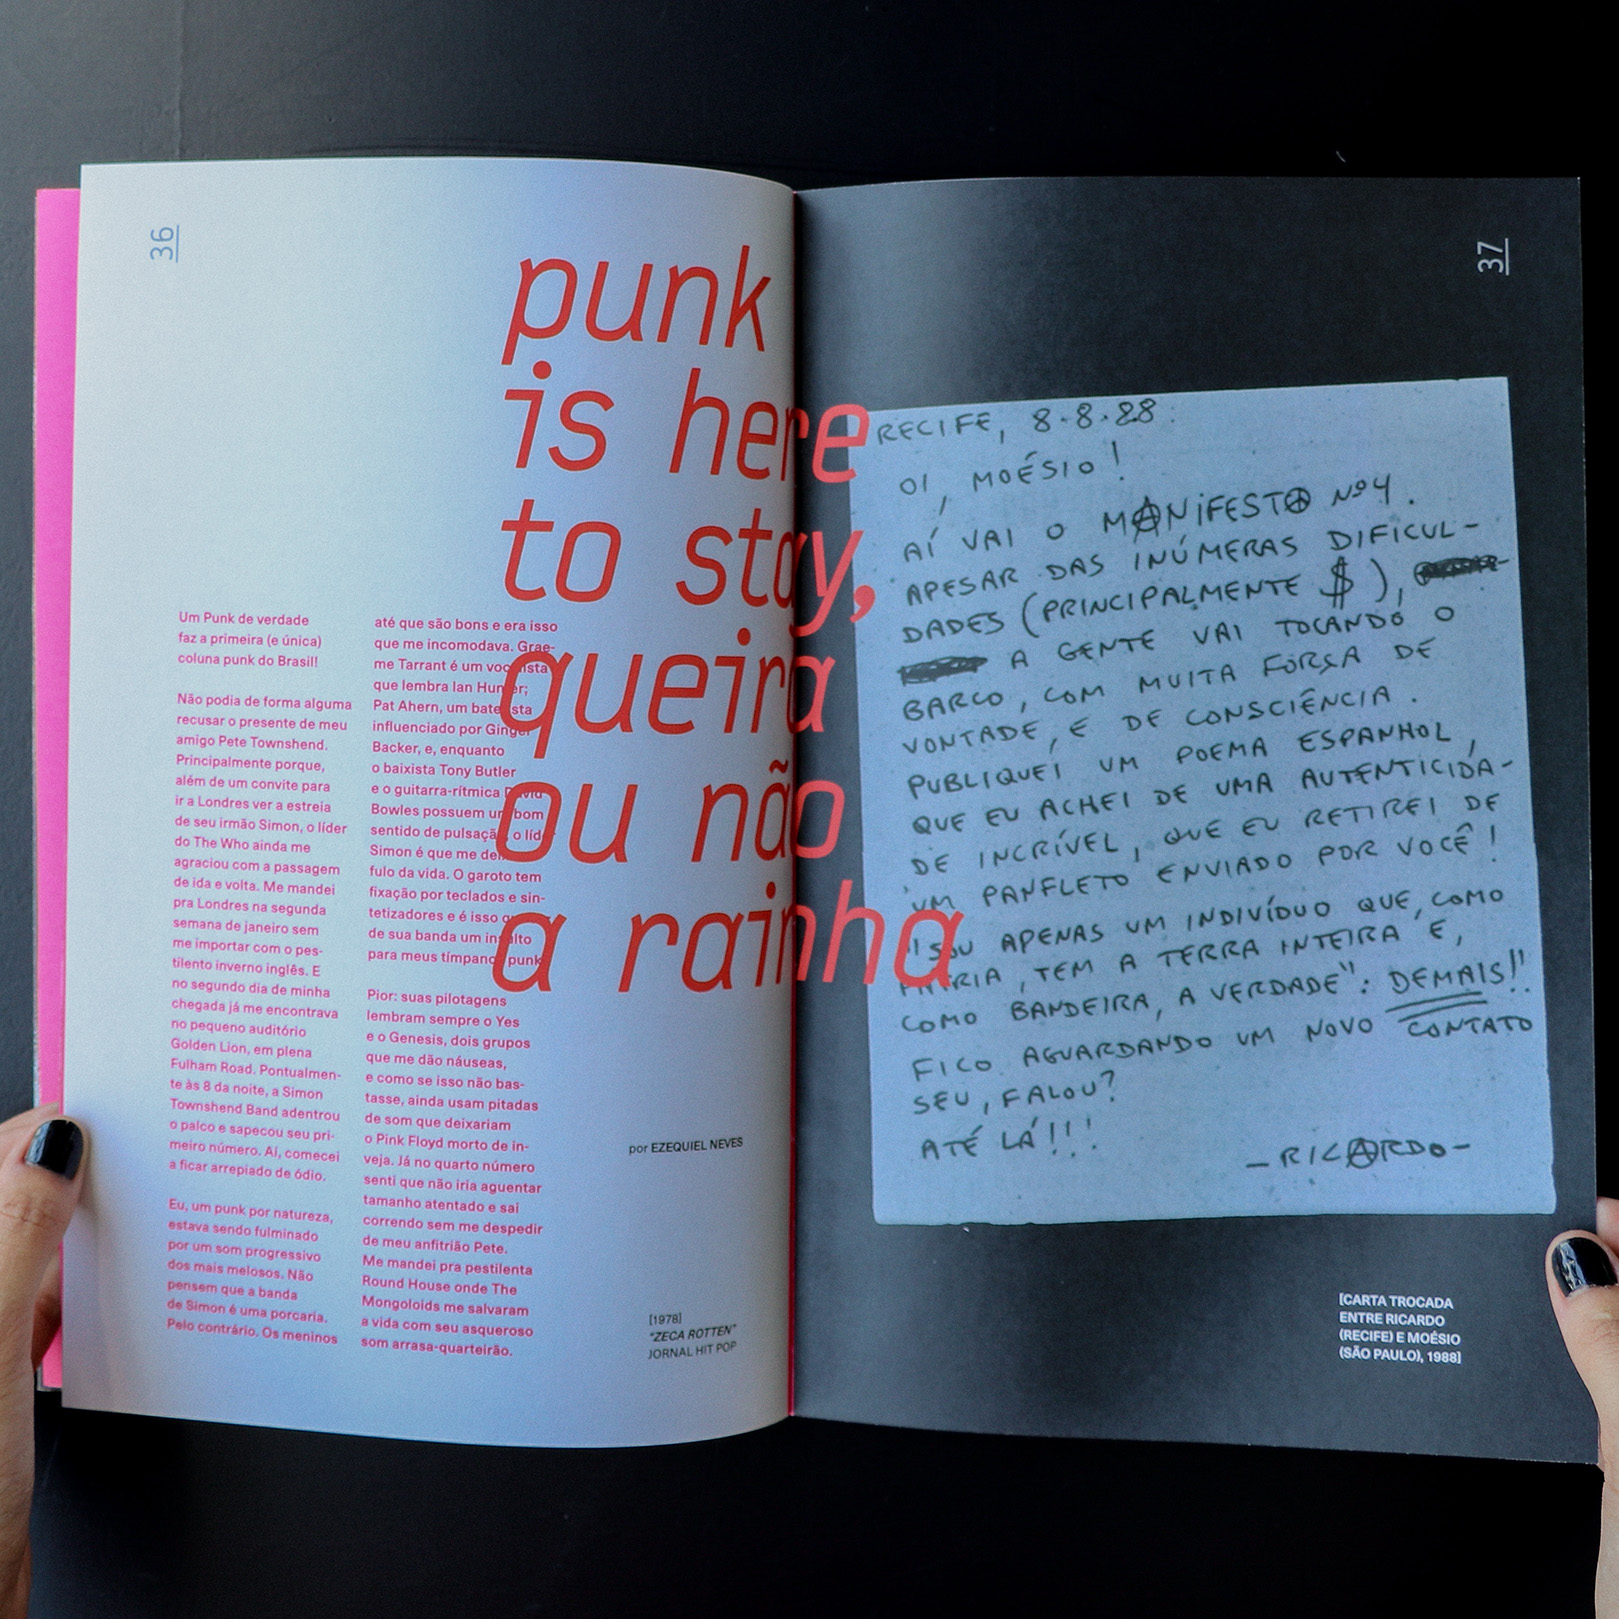 36
punk
is here
to stay,
queira
ou não
a rainha
Um Punk de verdade
faz a primeira (e única)
coluna punk do Brasil!
Não podia de forma alguma
recusar o presente de meu
amigo Pete Townshend.
Principalmente porque,
além de um convite para
ir a Londres ver a estreia
de seu irmão Simon, o líder
do The Who ainda me
agraciou com a passagem
de ida e volta. Me mandei
pra Londres na segunda
semana de janeiro sem
me importar com o pes-
tilento inverno inglês. E
no segundo dia de minha
chegada já me encontrava
no pequeno auditório
Golden Lion, em plena
Fulham Road. Pontualmen-
te às 8 da noite, a Simon
Townshend Band adentrou
o palco e sapecou seu pri-
meiro número. Aí, comecei
a ficar arrepiado de ódio.
Eu, um punk por natureza,
estava sendo fulminado
por um som progressivo
dos mais melosos. Não
pensem que a banda
de Simon é uma porcaria.
Pelo contrário. Os meninos
até que são bons e era isso
que me incomodava. Grae-
me Tarrant é um vocalista
que lembra Ian Hunter;
Pat Ahern, um baterista
influenciado por Ginger
Backer, e, enquanto
o baixista Tony Butler
e o guitarra-rítmica David
Bowles possuem um bom
sentido de pulsação, o líder
Simon é que me deixou
fulo da vida. O garoto tem
fixação por teclados e sin-
tetizadores e é isso que
de sua banda um insulto
para meus tímpanos punk.
Pior: suas pilotagens
lembram sempre o Yes
e o Genesis, dois grupos
que me dão náuseas,
e como se isso não bas-
tasse, ainda usam pitadas
de som que deixariam
o Pink Floyd morto de in-
veja. Já no quarto número
senti que não iria aguentar
tamanho atentado e sai
correndo sem me despedir
de meu anfitrião Pete.
Me mandei pra pestilenta
Round House onde The
Mongoloids me salvaram
a vida com seu asqueroso
som arrasa-quarteirão.
por EZEQUIEL NEVES
[1978]
"ZECA ROTTEN"
JORNAL HIT POP
37
RECIFE, 8.8.88.
OI, MOÉSIO!
AÍ VAI O MANIFESTO Nº4.
APESAR DAS INÚMERAS DIFICUL-
DADES (PRINCIPALMENTE $),
A GENTE VAI TOCANDO O
BARCO, COM MUITA FORÇA DE
VONTADE, E DE CONSCIÊNCIA.
PUBLIQUEI UM POEMA ESPANHOL,
QUE EU ACHEI DE UMA AUTENTICIDA-
DE INCRÍVEL, QUE EU RETIREI DE
UM PANFLETO ENVIADO POR VOCÊ!
"SOU APENAS UM INDIVÍDUO QUE, COMO
PÁTRIA, TEM A TERRA INTEIRA E,
COMO BANDEIRA, A VERDADE": DEMAIS!!
FICO AGUARDANDO UM NOVO CONTATO
SEU, FALOU?
ATÉ LÁ!!!
-RICARDO-
[CARTA TROCADA
ENTRE RICARDO
(RECIFE) E MOÉSIO
(SÃO PAULO), 1988]